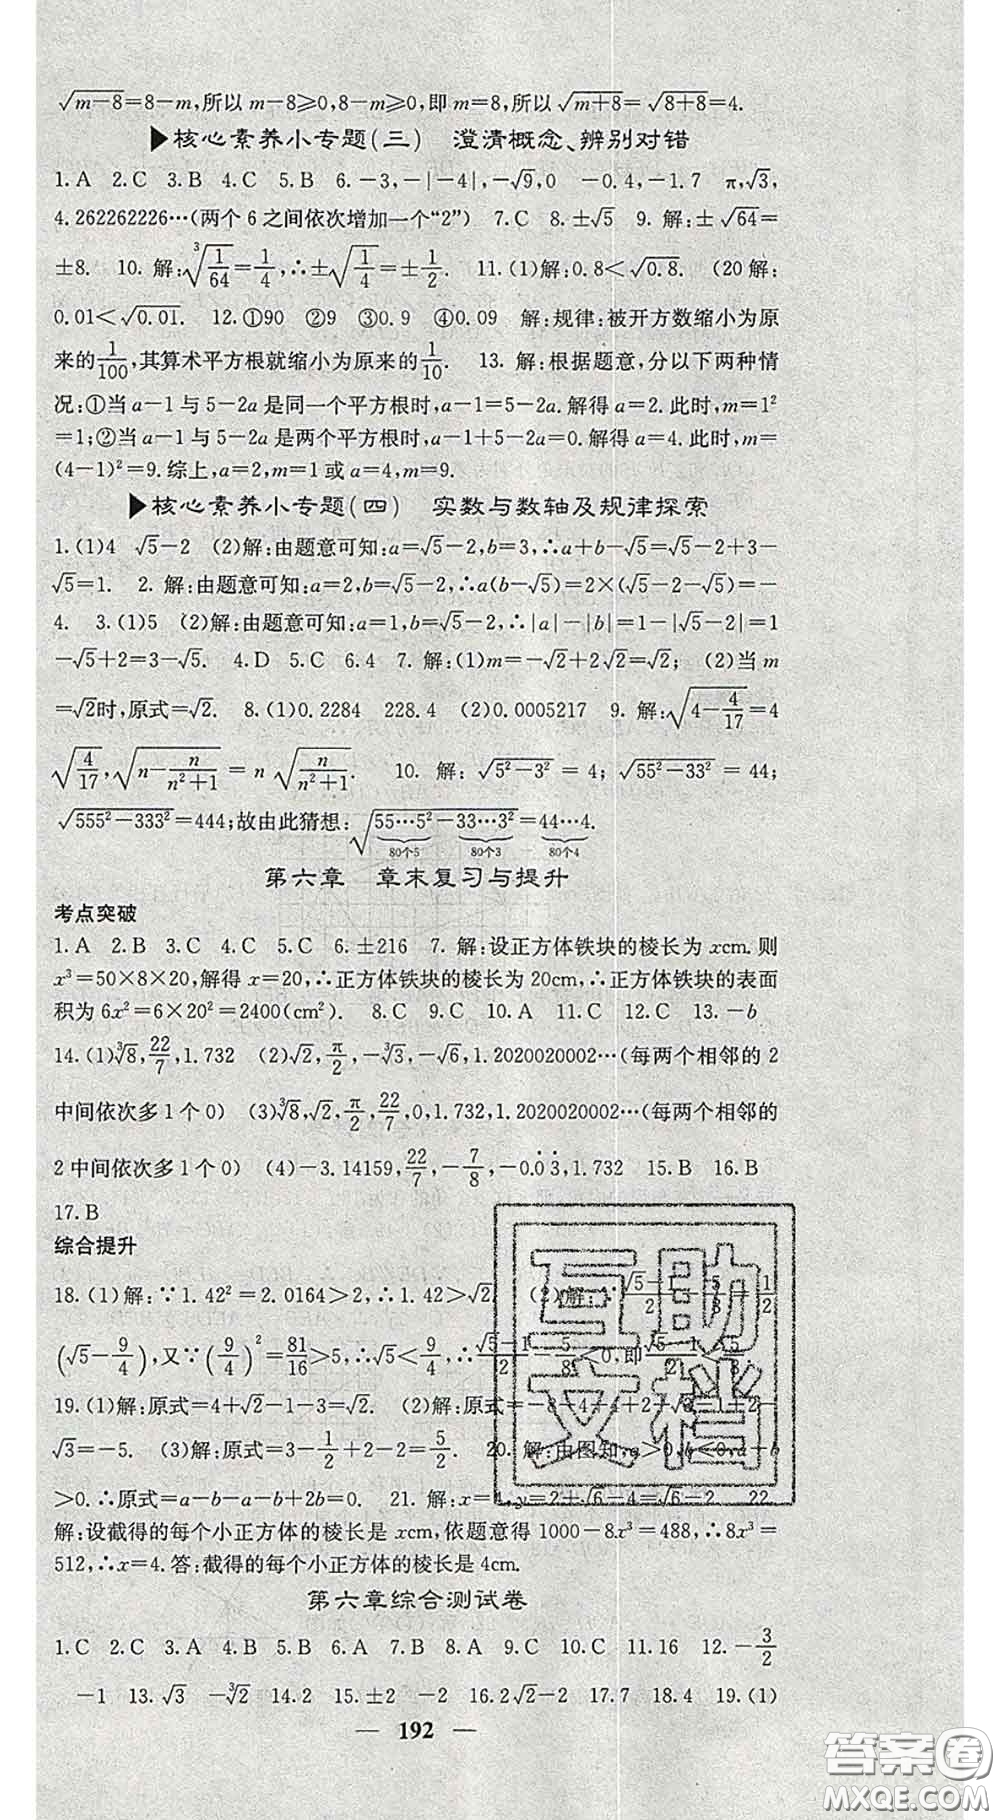 √(m−8)=8−m,所以 m−8⩾0,8−m⩾0,即 m=8,所以√(m+8)=√(8+8)=4.
▶核心素养小专题(三)　澄清概念、辨别对错
1.A 2.C 3.B 4.C 5.B 6.−3,−|−4|,−√9,0 −0.4,−1.7 π,√3,
4.262262226⋯(两个 6 之间依次增加一个“2”) 7.C 8.±√5 9.解:±√64=
±8. 10.解:∛(1/64)=1/4,∴±√(1/4)=±1/2. 11.(1)解:0.8<√0.8. (20解:
0.01<√0.01. 12.①90 ②9 ③0.9 ④0.09 解:规律:被开方数缩小为原
来的1/100,其算术平方根就缩小为原来的1/10. 13.解:根据题意,分以下两种情
况:①当 a−1 与 5−2a 是同一个平方根时,a−1=5−2a.解得 a=2.此时,m=1²
=1;②当 a−1 与 5−2a 是两个平方根时,a−1+5−2a=0.解得 a=4.此时,m=
(4−1)²=9.综上,a=2,m=1 或 a=4,m=9.
▶核心素养小专题(四)　实数与数轴及规律探索
1.(1)4 √5−2 (2)解:由题意可知:a=√5−2,b=3,∴a+b−√5=√5−2+3−
√5=1. 2.解:由题意可知:a=2,b=√5−2,∴a(b−√5)=2×(√5−2−√5)=−
4. 3.(1)5 (2)解:由题意可知:a=1,b=√5−2,∴|a|−|b|=1−|√5−2|=1
−√5+2=3−√5. 4.D 5.C 6.4 7.解:(1)m=−√2+2√2=√2; (2)当 m
=√2时,原式=√2. 8.(1)0.2284 228.4 (2)0.0005217 9.解:√(4−4/17)=4
√(4/17),√(n−n/(n²+1))=n√(n/(n²+1)). 10.解:√(5²−3²)=4;√(55²−33²)=44;
√(555²−333²)=444;故由此猜想:√(55⋯5²−33⋯3²)=44⋯4.
80个5 80个3 80个4
第六章　章末复习与提升
考点突破
1.A 2.B 3.C 4.C 5.C 6.±216 7.解:设正方体铁块的棱长为 xcm.则
x³=50×8×20,解得 x=20,∴正方体铁块的棱长为 20cm,∴正方体铁块的表面
积为 6x²=6×20²=2400(cm²). 8.C 9.C 10.A 11.C 12.C 13.−b
14.(1)∛8,22/7,1.732 (2)√2,π/2,−∛3,−√6,1.2020020002⋯(每两个相邻的 2
中间依次多 1 个 0) (3)∛8,√2,π/2,22/7,0,1.732,1.2020020002⋯(每两个相邻的
2 中间依次多 1 个 0) (4)−3.14159,22/7,−7/8,−0.0̇3̇,1.732 15.B 16.B
17.B
综合提升
18.(1)解:∵1.42²=2.0164>2,∴1.42>√2. (2)解:∵(√5−1)/2−5/8=1/2
(√5−9/4),又∵(9/4)²=81/16>5,∴√5<9/4,∴(√5−1)/2−5/8<0,即(√5−1)/2<5/8.
19.(1)解:原式=4+√2−1−3=√2. (2)解:原式=−8−4+4+2+√3−1+2−
√3=−5. (3)解:原式=3−1/2+2−2=5/2. 20.解:由图知,a>0,b<0,a+b
>0.∴原式=a−b−a−b+2b=0. 21.解:x=4,y=2+√6−4=√6−2 22.
解:设截得的每个小正方体的棱长是 xcm,依题意得 1000−8x³=488,∴8x³=
512,∴x=4.答:截得的每个小正方体的棱长是 4cm.
第六章综合测试卷
1.C 2.C 3.A 4.B 5.A 6.A 7.B 8.A 9.C 10.C 11.16 12.−3/2
−1 13.√3 −∛2 14.2 15.±2 −2 16.2√2−2 17.7 18.4 19.(1)
— 192 —
互助
文档
答案圈
MXQE.COM